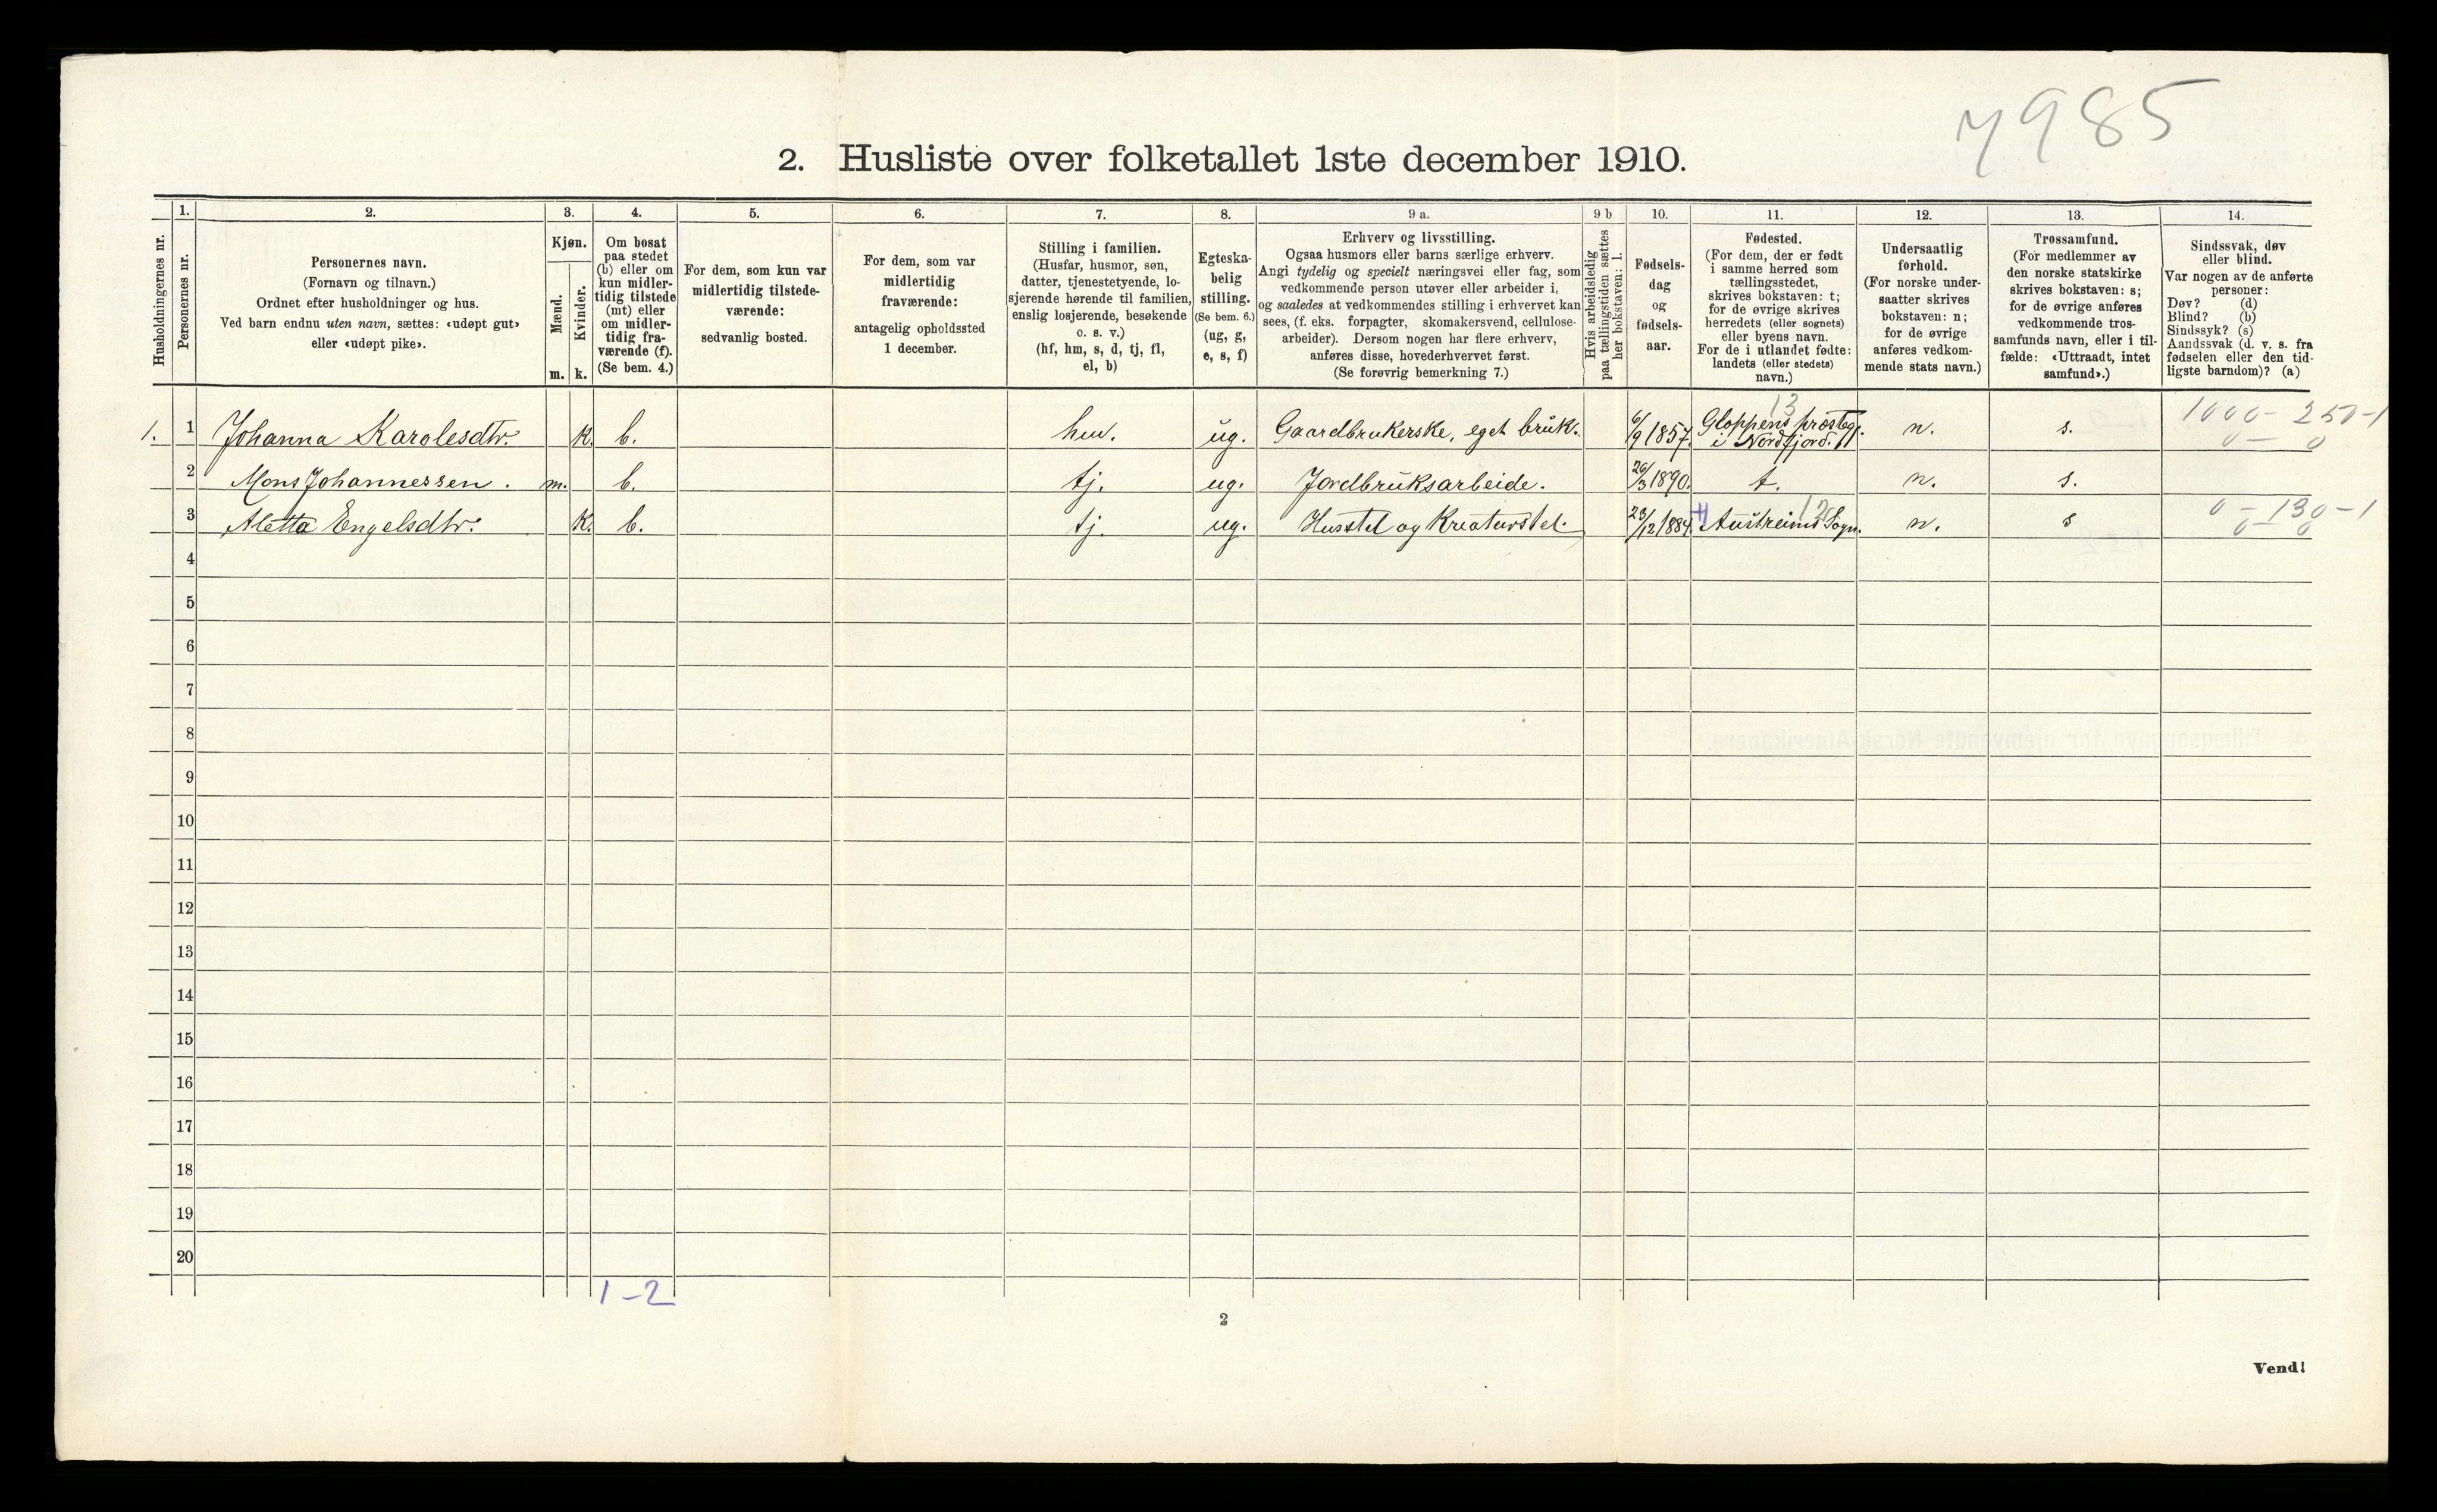 7985
2. Husliste over folketallet 1ste december 1910.
Husholdningernes nr.
1.
Personernes nr.
2.
Personernes navn.
(Fornavn og tilnavn.)
Ordnet efter husholdninger og hus.
Ved barn endnu uten navn, sættes: «udøpt gut»
eller «udøpt pike».
3.
Kjøn.
Mænd.
Kvinder.
m.
k.
4.
Om bosat
paa stedet
(b) eller om
kun midler-
tidig tilstede
(mt) eller
om midler-
tidig fra-
værende (f).
(Se bem. 4.)
5.
For dem, som kun var
midlertidig tilstede-
værende:
sedvanlig bosted.
6.
For dem, som var
midlertidig
fraværende:
antagelig opholdssted
1 december.
7.
Stilling i familien.
(Husfar, husmor, søn,
datter, tjenestetyende, lo-
sjerende hørende til familien,
enslig losjerende, besøkende
o. s. v.)
(hf, hm, s, d, tj, fl,
el, b)
8.
Egteska-
belig
stilling.
(Se bem. 6.)
(ug, g,
e, s, f)
9 a.
Erhverv og livsstilling.
Ogsaa husmors eller barns særlige erhverv.
Angi tydelig og specielt næringsvei eller fag, som
vedkommende person utøver eller arbeider i,
og saaledes at vedkommendes stilling i erhvervet kan
sees, (f. eks. forpagter, skomakersvend, cellulose-
arbeider). Dersom nogen har flere erhverv,
anføres disse, hovederhvervet først.
(Se forøvrig bemerkning 7.)
9 b
Hvis arbeidsledig
paa tællingstiden sættes
her bokstaven: l.
10.
Fødsels-
dag
og
fødsels-
aar.
11.
Fødested.
(For dem, der er født
i samme herred som
tællingsstedet,
skrives bokstaven: t;
for de øvrige skrives
herredets (eller sognets)
eller byens navn.
For de i utlandet fødte:
landets (eller stedets)
navn.)
12.
Undersaatlig
forhold.
(For norske under-
saatter skrives
bokstaven: n;
for de øvrige
anføres vedkom-
mende stats navn.)
13.
Trossamfund.
(For medlemmer av
den norske statskirke
skrives bokstaven: s;
for de øvrige anføres
vedkommende tros-
samfunds navn, eller i til-
fælde: «Uttraadt, intet
samfund».)
14.
Sindssvak, døv
eller blind.
Var nogen av de anførte
personer:
Døv? (d)
Blind? (b)
Sindssyk? (s)
Aandssvak (d. v. s. fra
fødselen eller den tid-
ligste barndom)? (a)
1. 1 Johanna Karolesdtr. k. b. hm. ug. Gaardbrukerske, eget bruk. 6/9 1857. Gloppens præsteg. i Nordfjord. 13 n. s. 1000- 250-1
0- 0
2 Mons Johannessen. m. b. tj. ug. Jordbruksarbeide. 26/3 1890. t. n. s.
3 Aletta Engelsdtr. K. b. tj. ug. Husstel og Kreaturstel. 23/12 1884. Austreims Sogn. n. s 0- 130-1
0- 0
4
5
6
7
8
9
10
11
12
13
14
15
16
17
18
19
20
1-2
2
Vend!